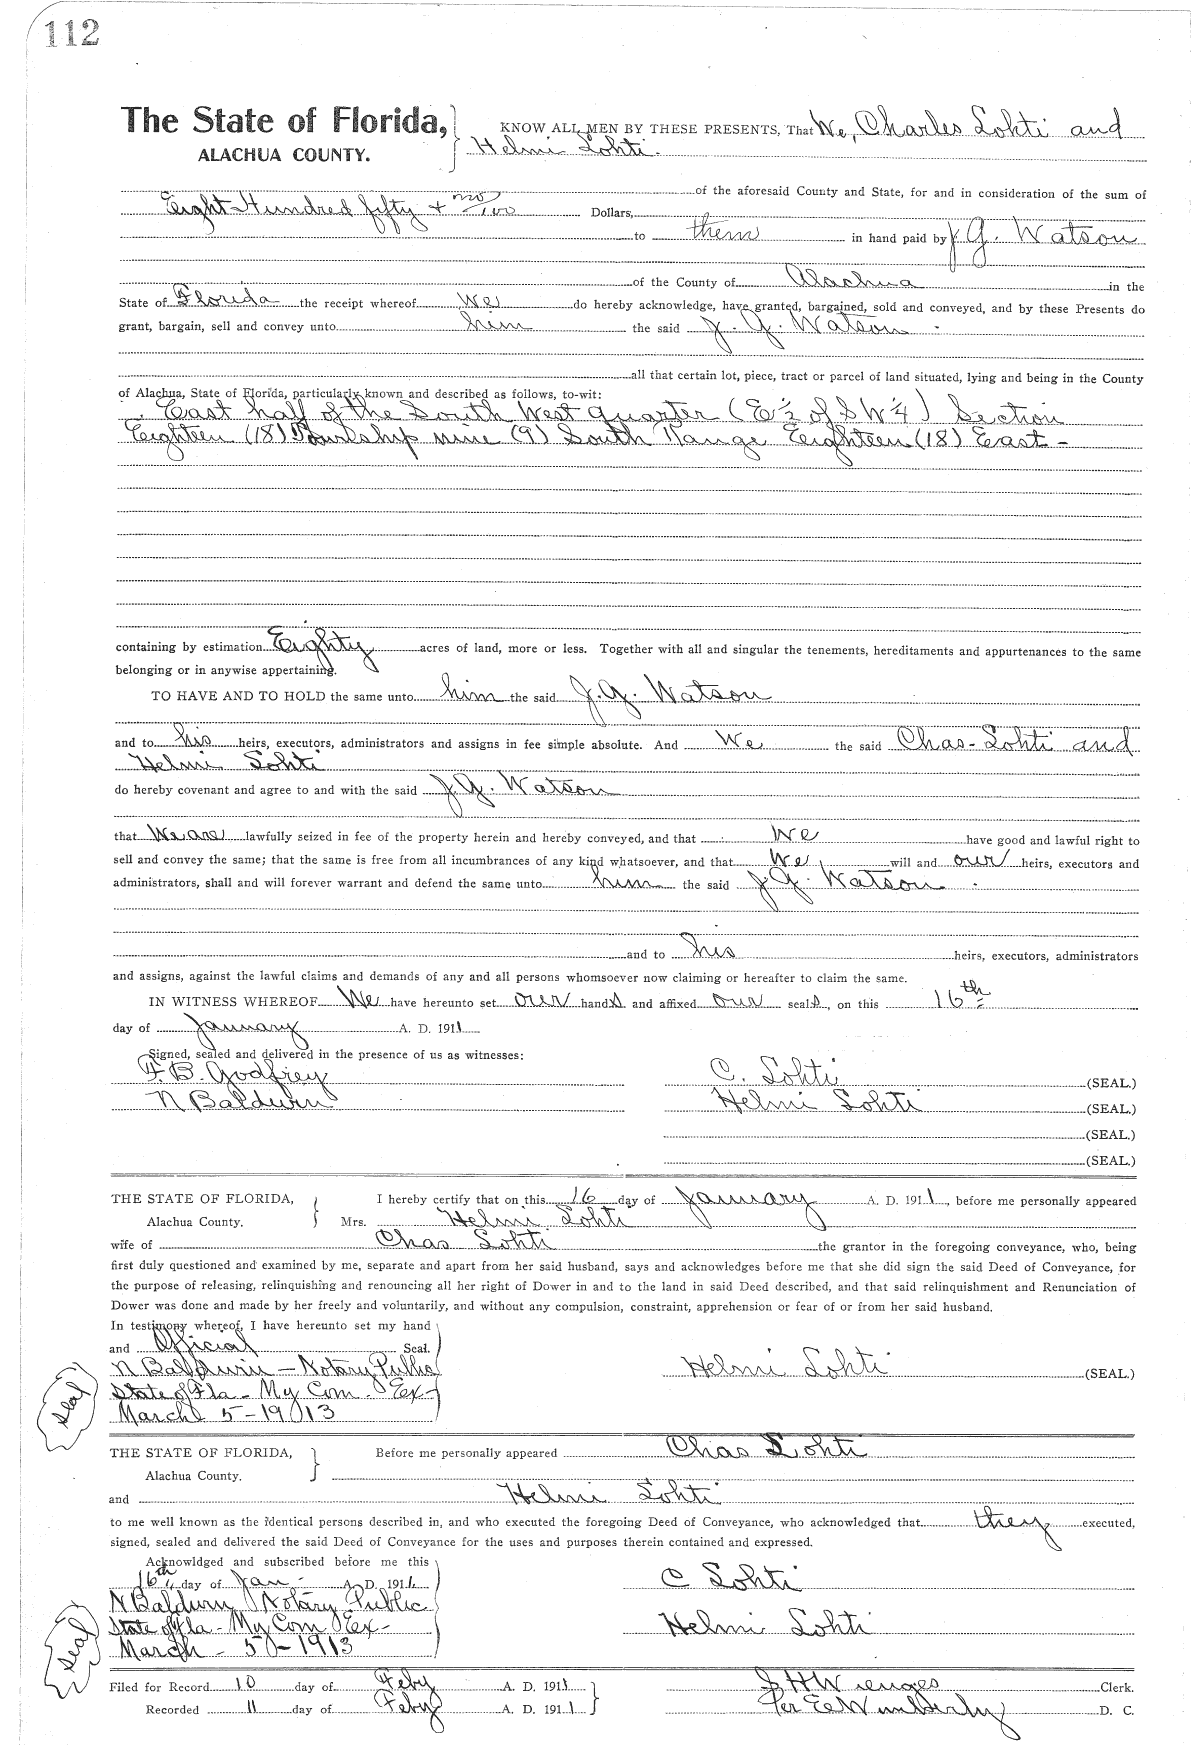 112
The State of Florida, KNOW ALL MEN BY THESE PRESENTS, That We, Charles Lohti and
ALACHUA COUNTY. Helmi Lohti.
of the aforesaid County and State, for and in consideration of the sum of
Eight Hundred fifty + no/100 Dollars,
to them in hand paid by J. G. Watson
of the County of Alachua in the
State of Florida the receipt whereof We do hereby acknowledge, have granted, bargained, sold and conveyed, and by these Presents do
grant, bargain, sell and convey unto him the said J. G. Watson.
all that certain lot, piece, tract or parcel of land situated, lying and being in the County
of Alachua, State of Florida, particularly known and described as follows, to-wit:
East half of the South West quarter (E ½ of S W ¼) Section
Eighteen (18) Township nine (9) South Range Eighteen (18) East-
containing by estimation Eighty acres of land, more or less. Together with all and singular the tenements, hereditaments and appurtenances to the same
belonging or in anywise appertaining.
TO HAVE AND TO HOLD the same unto him the said J. G. Watson
and to his heirs, executors, administrators and assigns in fee simple absolute. And We the said Chas- Lohti and
Helmi Lohti
do hereby covenant and agree to and with the said J. G. Watson
that We are lawfully seized in fee of the property herein and hereby conveyed, and that We have good and lawful right to
sell and convey the same; that the same is free from all incumbrances of any kind whatsoever, and that We will and our heirs, executors and
administrators, shall and will forever warrant and defend the same unto him the said J. G. Watson.
and to his heirs, executors, administrators
and assigns, against the lawful claims and demands of any and all persons whomsoever now claiming or hereafter to claim the same.
IN WITNESS WHEREOF We have hereunto set our hands and affixed our seals, on this 16th
day of January A. D. 1911
Signed, sealed and delivered in the presence of us as witnesses:
F. B. Godfrey C. Lohti (SEAL.)
N Baldwin Helmi Lohti (SEAL.)
(SEAL.)
(SEAL.)
THE STATE OF FLORIDA, I hereby certify that on this 16 day of January A. D. 1911, before me personally appeared
Alachua County. Mrs. Helmi Lohti
wife of Chas Lohti the grantor in the foregoing conveyance, who, being
first duly questioned and examined by me, separate and apart from her said husband, says and acknowledges before me that she did sign the said Deed of Conveyance, for
the purpose of releasing, relinquishing and renouncing all her right of Dower in and to the land in said Deed described, and that said relinquishment and Renunciation of
Dower was done and made by her freely and voluntarily, and without any compulsion, constraint, apprehension or fear of or from her said husband.
In testimony whereof, I have hereunto set my hand
and Official Seal.
N Baldwin - Notary Public Helmi Lohti (SEAL.)
State of Fla - My Com. Ex-
March 5-1913
Seal
THE STATE OF FLORIDA, Before me personally appeared Chas Lohti
Alachua County.
and Helmi Lohti
to me well known as the identical persons described in, and who executed the foregoing Deed of Conveyance, who acknowledged that they executed,
signed, sealed and delivered the said Deed of Conveyance for the uses and purposes therein contained and expressed.
Acknowldged and subscribed before me this
16th day of Jan- A. D. 1911. C Lohti
N Baldwin Notary Public
State of Fla - My Com Ex- Helmi Lohti
March - 5 - 1913
Seal
Filed for Record 10 day of Feby A. D. 1911 S H Wienges Clerk.
Recorded 11 day of Feby A. D. 1911 Per E E Wimberly D. C.